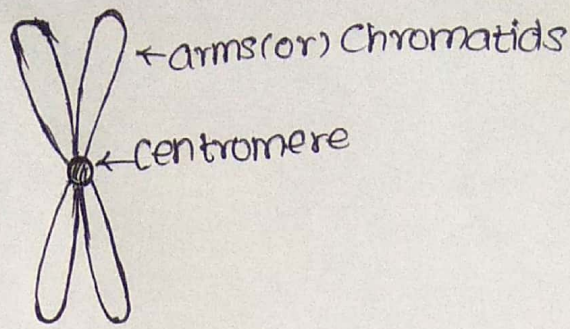 arms(or) Chromatids
centromere